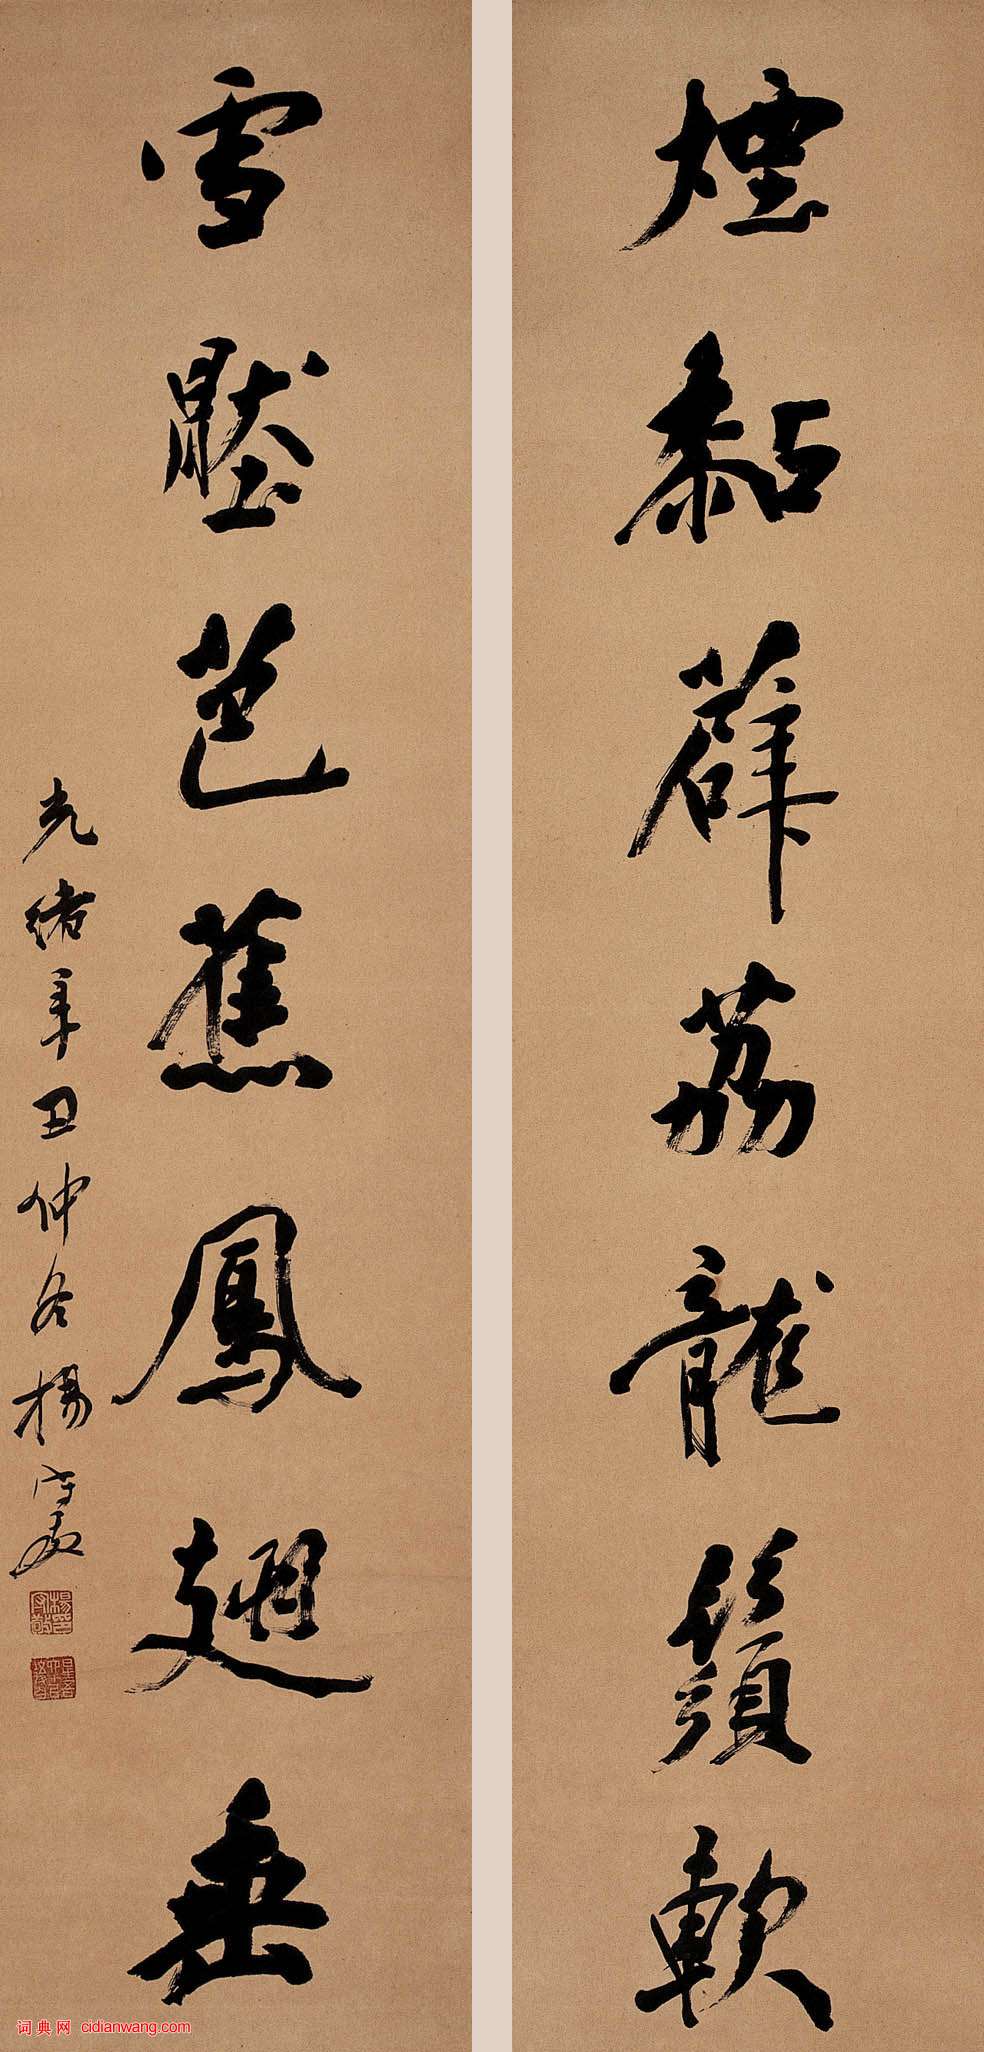 煙黏薜荔龍鬚軟
雪壓芭蕉鳳翅垂
光緒辛丑仲冬楊守敬
楊印守敬
詞典網 cidianwang.com